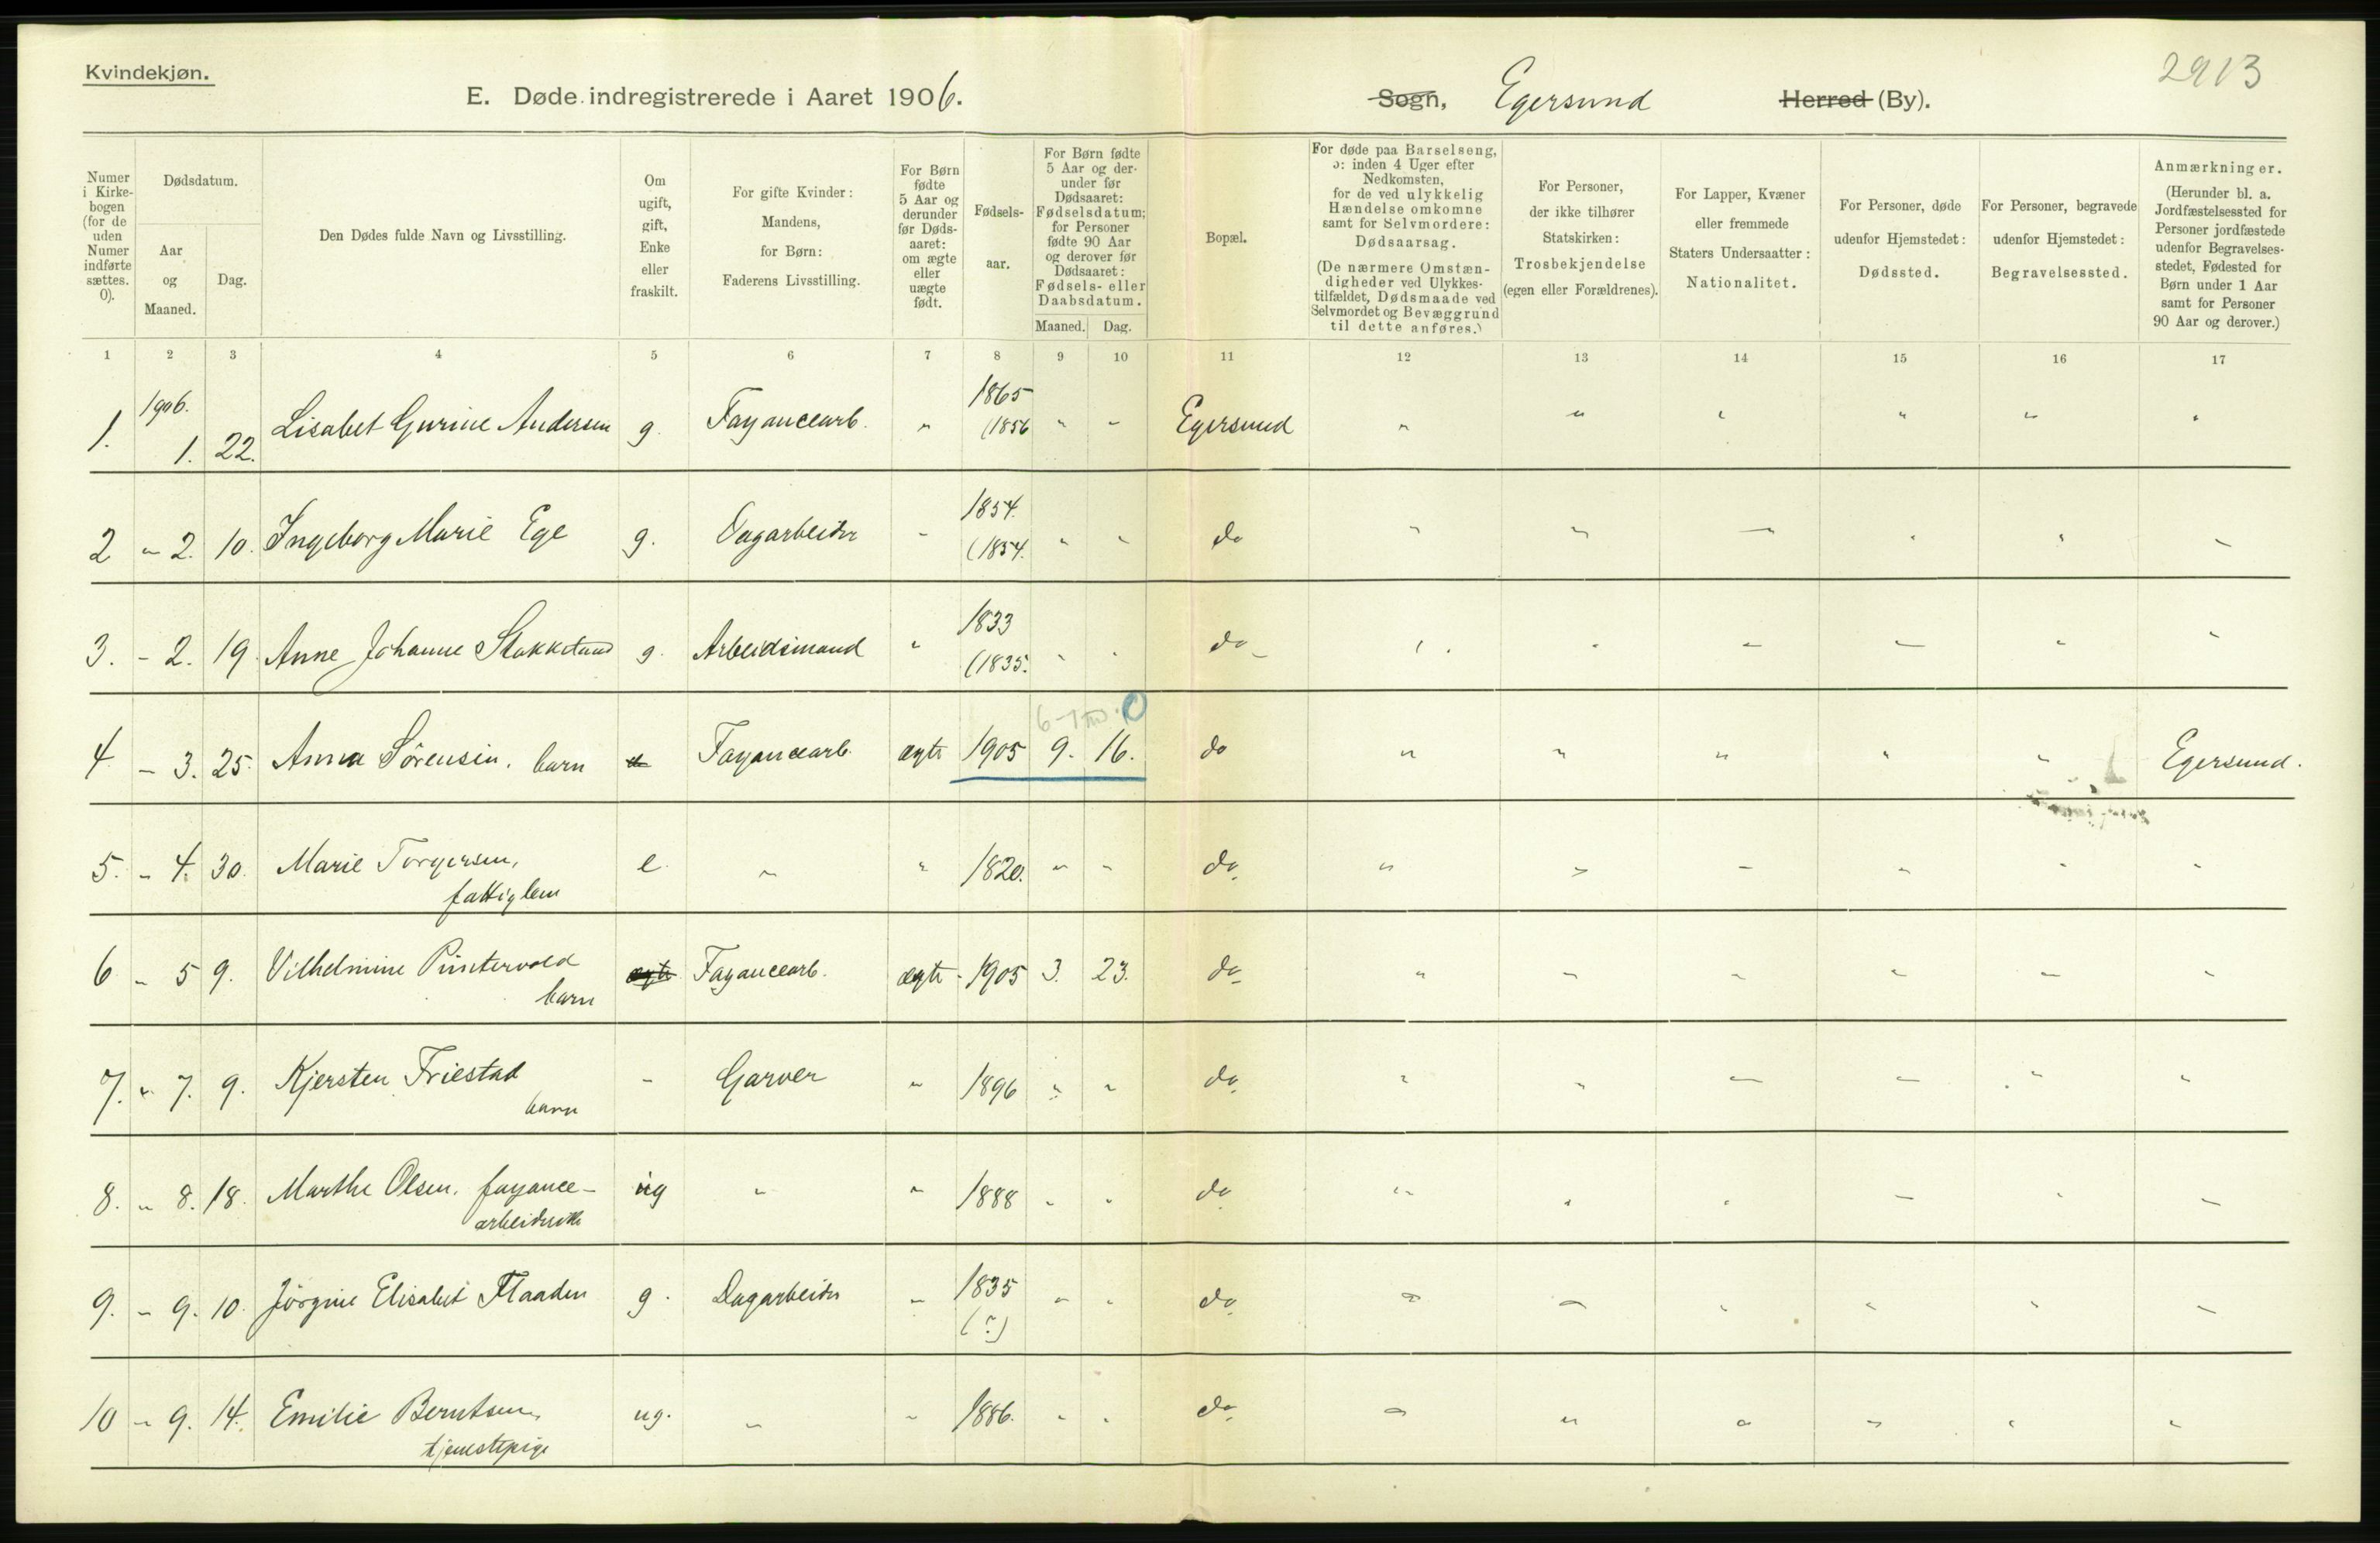 Kvindekjøn.
2913
E. Døde indregistrerede i Aaret 1906.
Sogn, Egersund Herred (By).
Numer i Kirkebogen (for de uden Numer indførte sættes. 0).
Dødsdatum.
Aar og Maaned.
Dag.
Den Dødes fulde Navn og Livsstilling.
Om ugift, gift, Enke eller fraskilt.
For gifte Kvinder: Mandens, for Børn: Faderens Livsstilling.
For Børn fødte 5 Aar og derunder før Dødsaaret: om ægte eller uægte født.
Fødselsaar.
For Børn fødte 5 Aar og derunder før Dødsaaret: Fødselsdatum; for Personer fødte 90 Aar og derover før Dødsaaret: Fødsels- eller Daabsdatum.
Maaned. Dag.
Bopæl.
For døde paa Barselseng, ɔ: inden 4 Uger efter Nedkomsten, for de ved ulykkelig Hændelse omkomne samt for Selvmordere: Dødsaarsag. (De nærmere Omstændigheder ved Ulykkestilfældet, Dødsmaade ved Selvmordet og Bevæggrund til dette anføres.)
For Personer, der ikke tilhører Statskirken: Trosbekjendelse (egen eller Forældrenes).
For Lapper, Kvæner eller fremmede Staters Undersaatter: Nationalitet.
For Personer, døde udenfor Hjemstedet: Dødssted.
For Personer, begravede udenfor Hjemstedet: Begravelsessted.
Anmærkninger. (Herunder bl. a. Jordfæstelsessted for Personer jordfæstede udenfor Begravelsesstedet, Fødested for Børn under 1 Aar samt for Personer 90 Aar og derover.)
1 2 3 4 5 6 7 8 9 10 11 12 13 14 15 16 17
1. 1906. 1. 22. Lisabet Gurine Andersen g. Fayancearb. " 1865 (1856 " " Egersund " " " " " "
2 " 2. 10. Ingeborg Marie Ege g. Dagarbeider " 1854. (1854. " " do " " " " " "
3. - 2. 19. Anne Johanne Stakkeland g. Arbeidsmand " 1833 (1835. " " do " " " " " "
4 - 3. 25. Anna Sörensen. barn Fayancearb. ægte 1905 9. 16. do " " " " " Egersund.
5. - 4. 30. Marie Torgersen, fattiglem e. " " 1820. " " do. " " " " " "
6 - 5 9. Vilhelmine Puntervold barn ægte Fayancearb. ægte - 1905 3. 23. do. " " " " " "
7. " 7. 9. Kjersten Friestad barn - Garver " 1896 " " do. " " " " " "
8. " 8. 18. Marthe Olsen, fayance- ug " " 1888 " " do. " " " " " "
9. - 9. 10. Jörgine Elisabet Flaaden g. Dagarbeider " 1835 (?) " " do. " " " " " "
10 - 9. 14. Emilie Berntsen, tjenestepige ug. " " 1886. " " do. " " " " " "